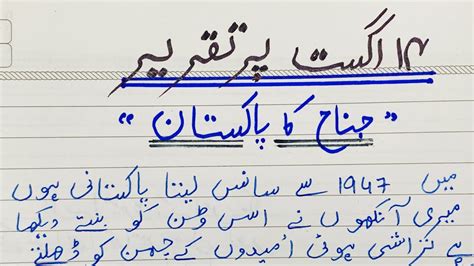 ۱۴ اگست پر تقریر
”جناح کا پاکستان“
میں 1947 سے سانس لیتا پاکستانی ہوں
میری آنکھوں نے اس وطن کو بنتے دیکھا
ہے تراشی ہوئی اُمیدوں کے چمن کو ڈھلتے